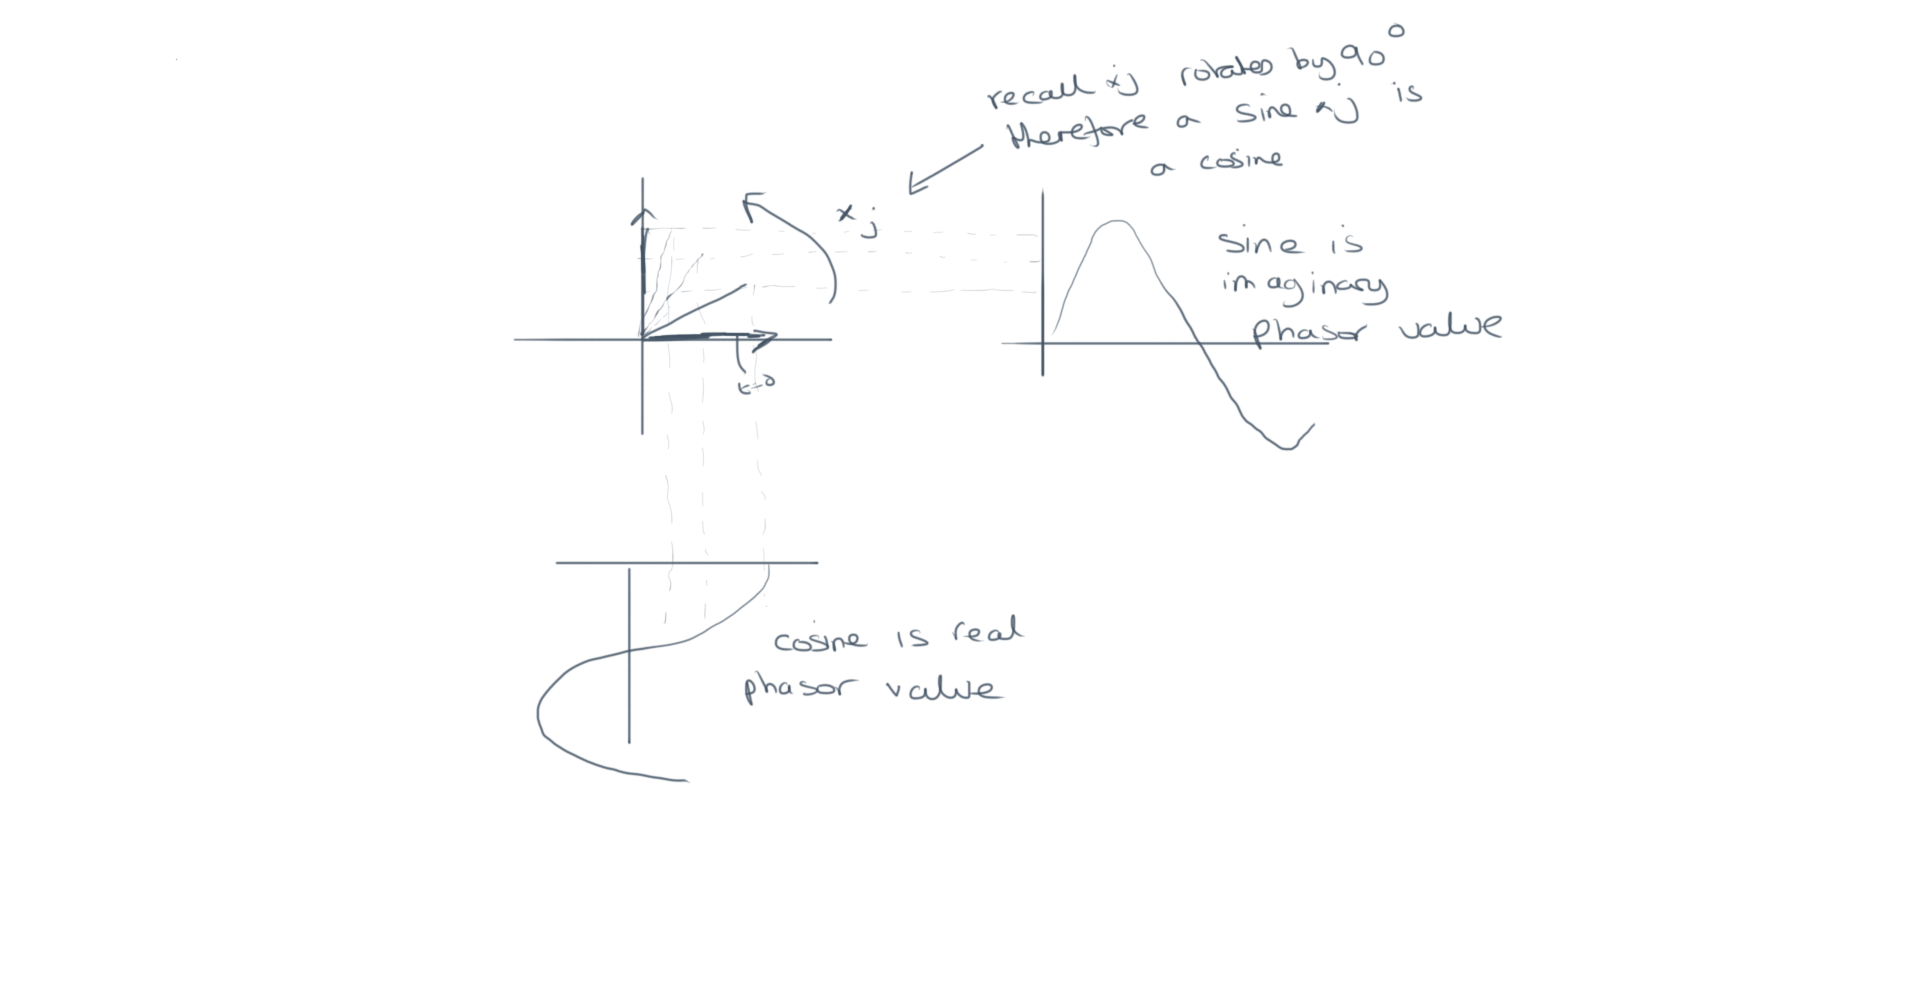 recall xj rotates by 90°
therefore a sine xj is
a cosine
xj
sine is
imaginary
phasor value
t=0
cosine is real
phasor value